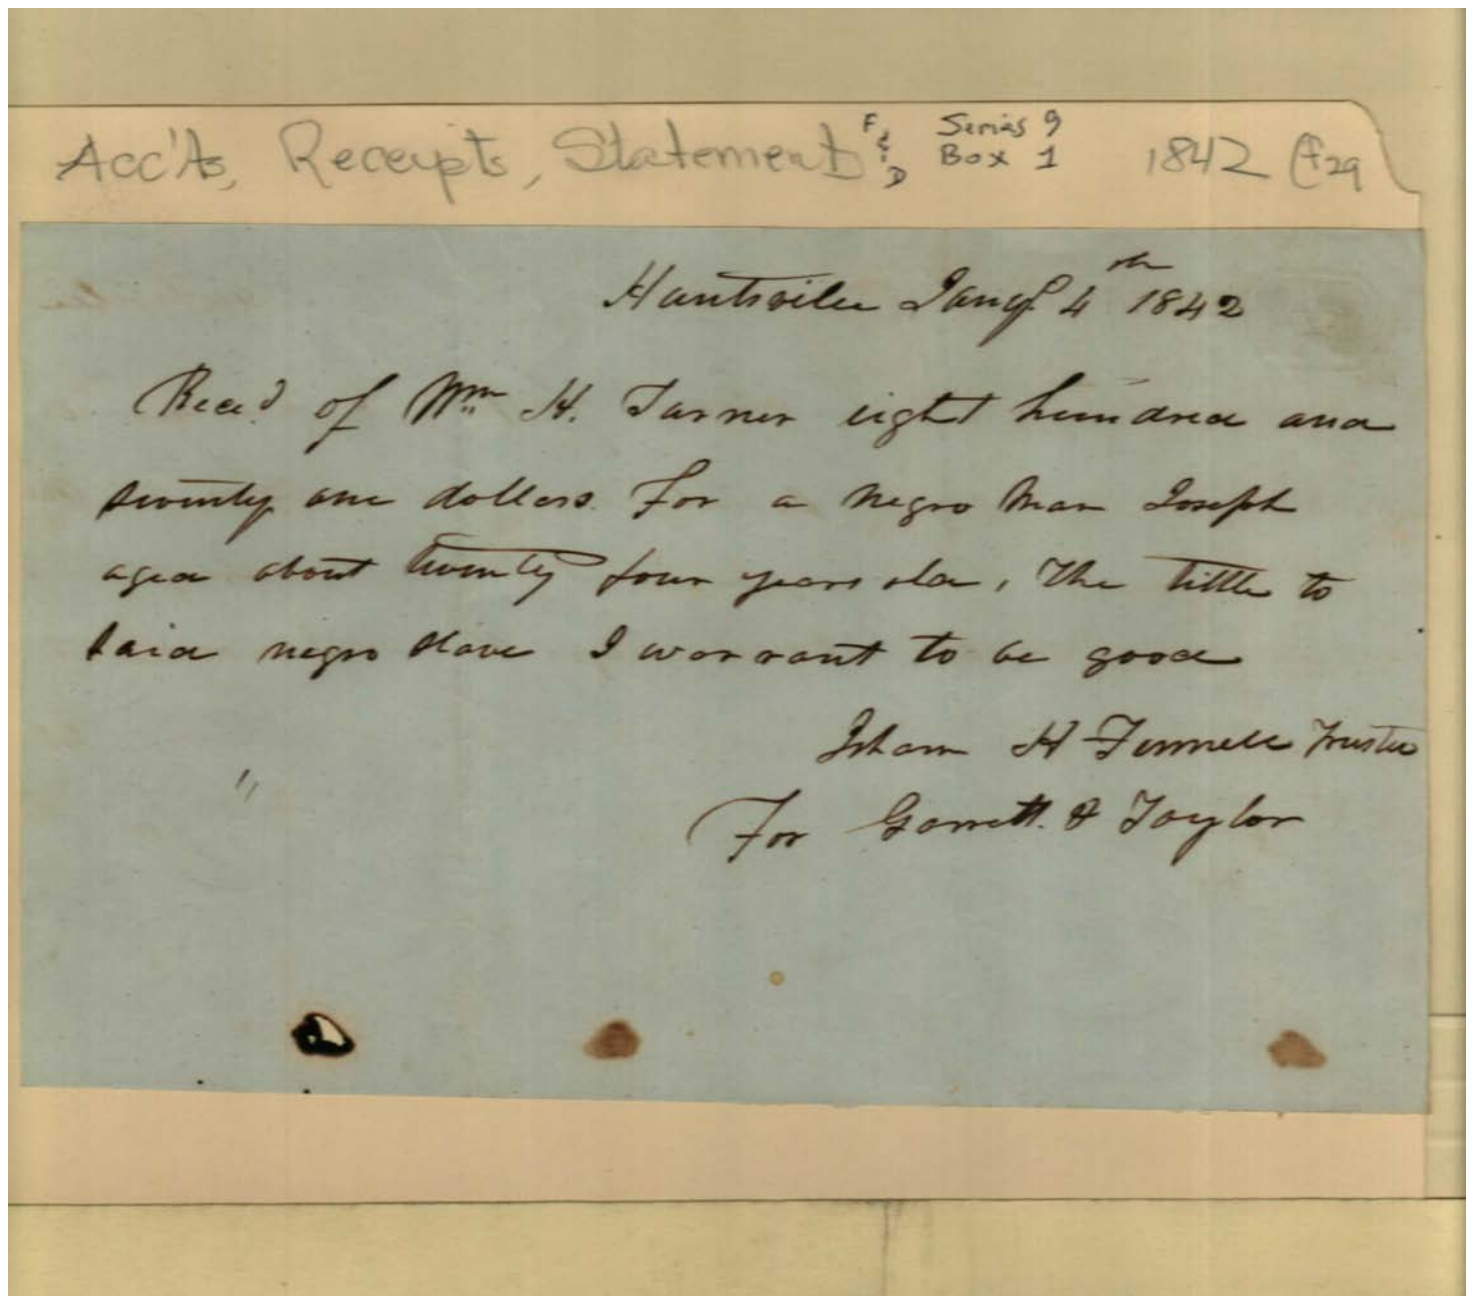 Acc'ts, Receipts, Statement F & D Series 9 Box 1 1842 (f29
Huntsville Jany 4th 1842
Recd of Wm H. Turner eight hundred and
seventy one dollars For a negro man Joseph
aged about twenty four years old, The tittle to
said negro slave I warrant to be good
Isham H Fennell Trustee
For Garrett & Taylor